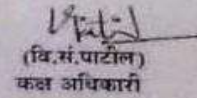 (वि.सं.पाटील)
कक्ष अधिकारी